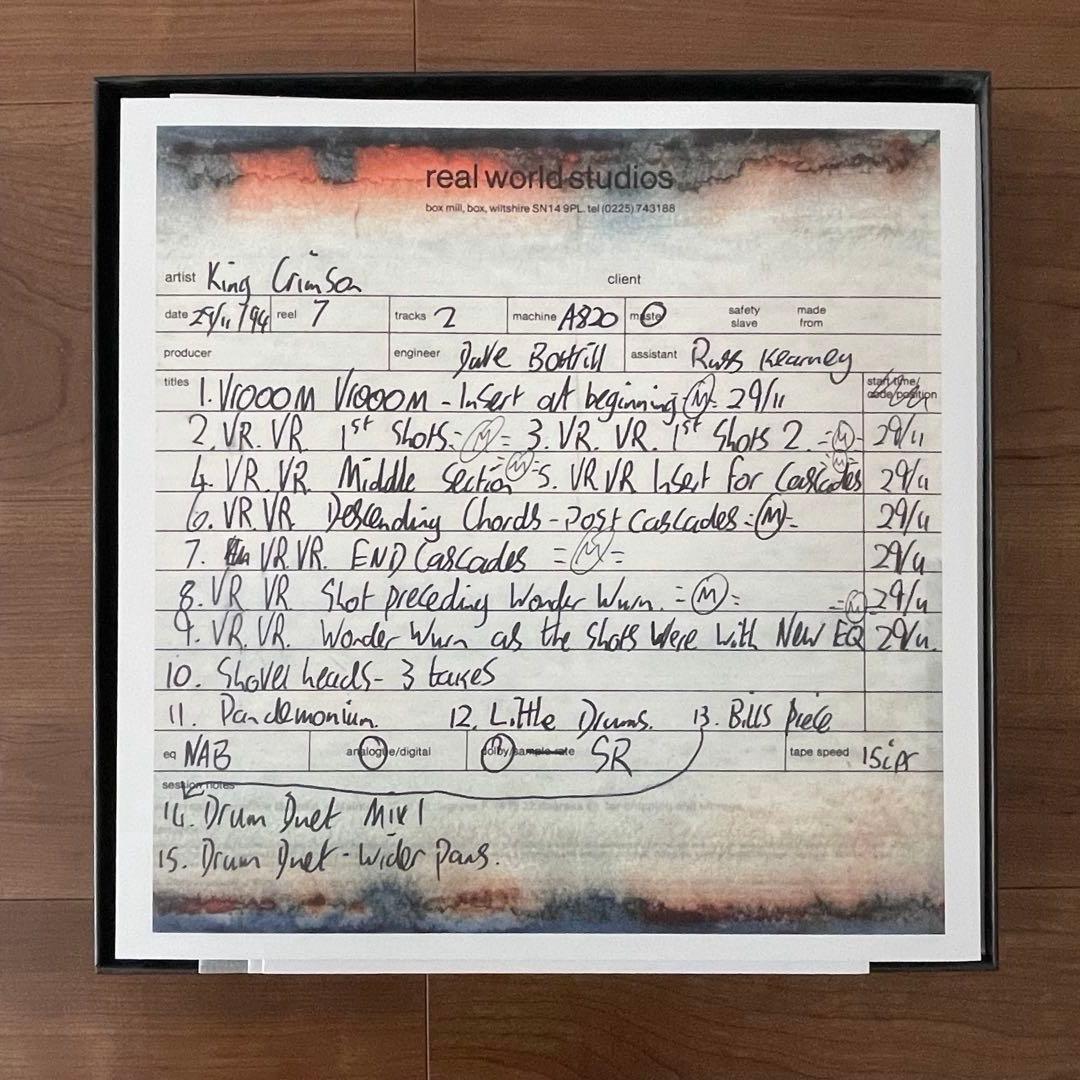 real world studios
box mill, box, wiltshire SN14 9PL. tel (0225) 743188
artist King Crimson client
date 29/11/94 reel 7 tracks 2 machine A820 master safety slave made from
producer engineer Dave Bottrill assistant Russ Kearney
titles 1. V1000M V1000M - Insert at beginning (M) = 29/11 start time/ code/position
2. VR. VR. 1st Shots. = (M) = 3. VR. VR. 1st Shots 2. = (M) = 29/11
4. VR. VR. Middle Section (M) = 5. VR VR Insert for Cascades (M) 29/11
6. VR. VR. Descending Chords - Post Cascades = (M) = 29/11
7. VR. VR. END Cascades = (M) = 29/11
8. VR VR Shot preceding Wonder Wurn. = (M) = 29/11
9. VR. VR. Wonder Wurn as the Shots Were with New EQ = (M) = 29/11.
10. Shovel heads - 3 takes
11. Pandemonium. 12. Little Drums. 13. Bills Piece
eq NAB analogue/digital dolby/sample rate SR tape speed 15ips
session notes
14. Drum Duet Mix 1
15. Drum Duet - Wider Pans.